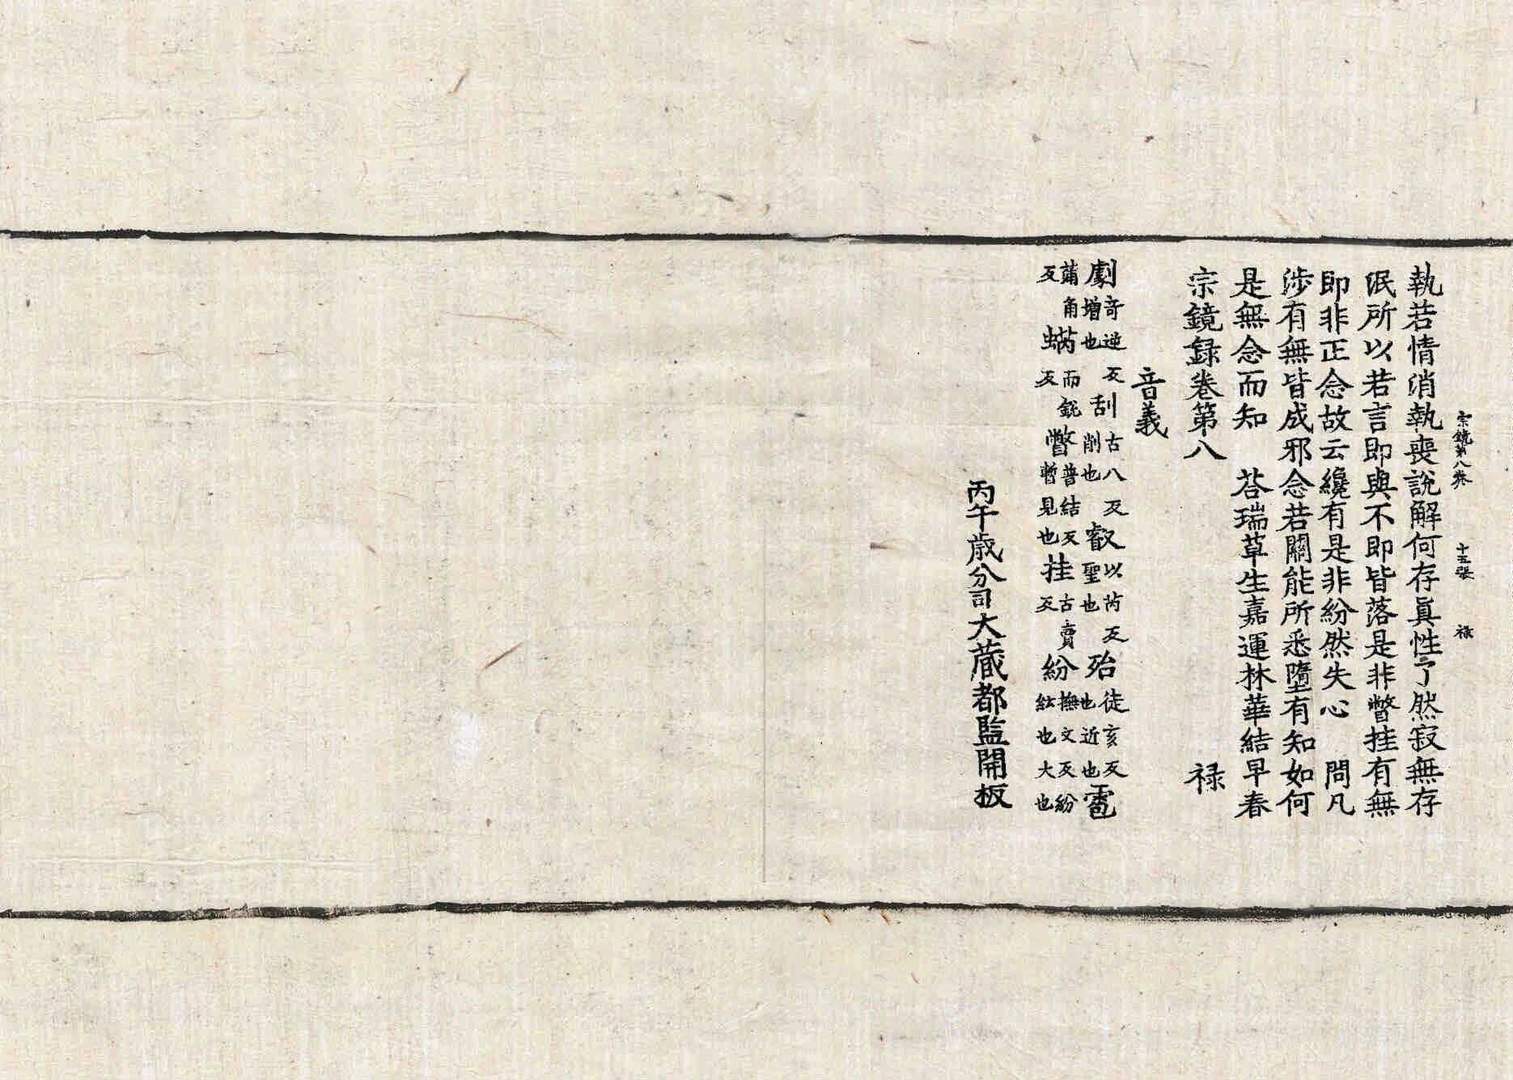 宗鏡第八卷 十五張 禄
執若情消執喪說解何存眞性了然寂無存
泯所以若言即與不即皆落是非瞥挂有無
即非正念故云纔有是非紛然失心 問凡
涉有無皆成邪念若關能所悉墮有知如何
是無念而知 荅瑞草生嘉運林華結早春
宗鏡錄卷第八 禄
音義
劇奇逆反增也刮古八反削也叡以芮反聖也殆徒亥反近也也雹
蒲角反蜹而銳反瞥普結反暫見也挂古賣反紛撫文反紛紜也大也
丙午歳分司大藏都監開板